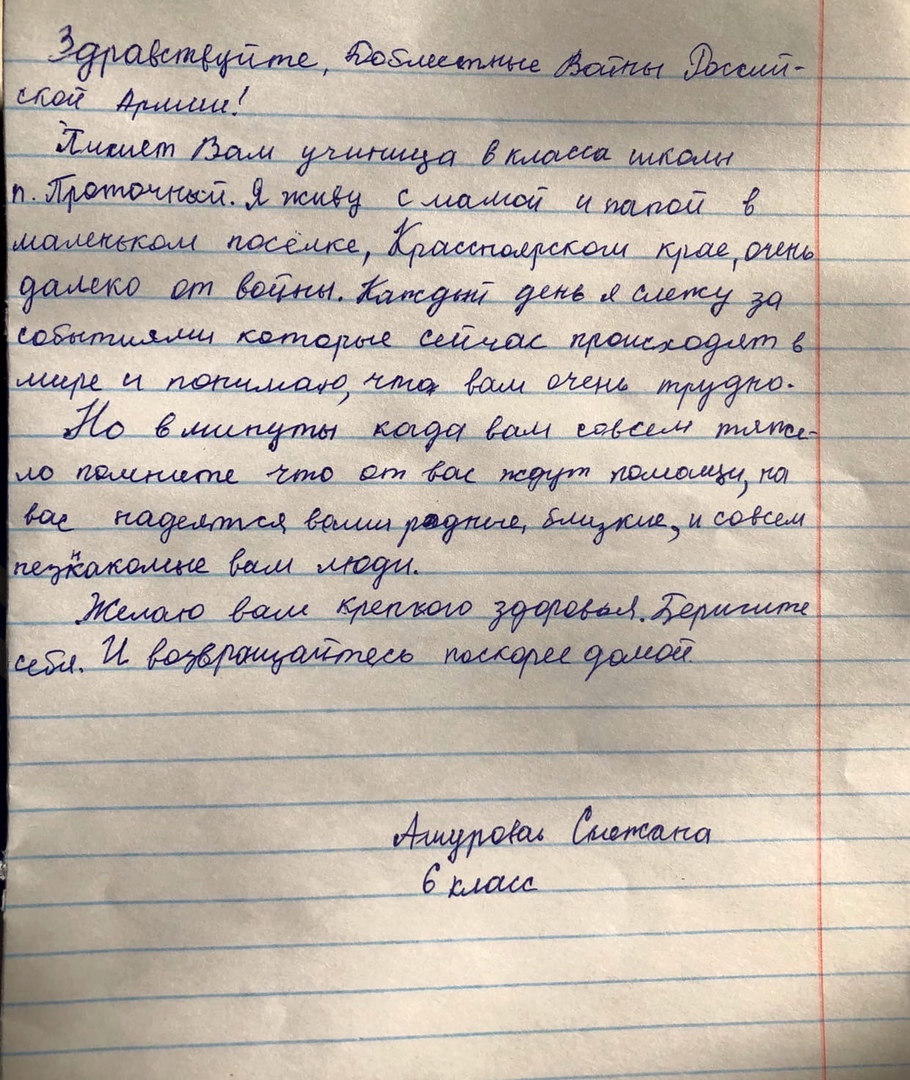 Здравствуйте, Доблестные Войны Россий-
ской Армии!
Пишет Вам учиница 6 класса школы
п. Проточный. Я живу с мамой и папой в
маленьком посёлке, Красноярском крае, очень
далеко от войны. Каждый день я слежу за
событиями которые сейчас происходят в
мире и понимаю, что вам очень трудно.
Но в минуты когда вам совсем тяже-
ло помните что от вас ждут помощи, на
вас надеятся ваши родные, близкие, и совсем
незнакомые вам люди.
Желаю вам крепкого здоровья. Беригите
себя. И возвращайтесь поскорее домой.
Ашурова Снежана
6 класс